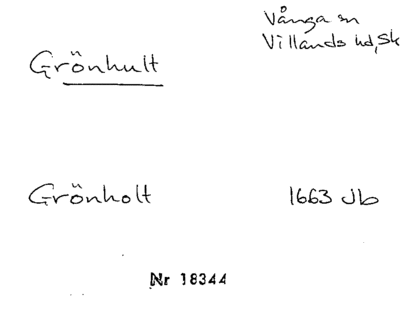 Vånga sn
Villands hd, Sk
Grönhult
Grönholt 1663 Jb
Nr 18344